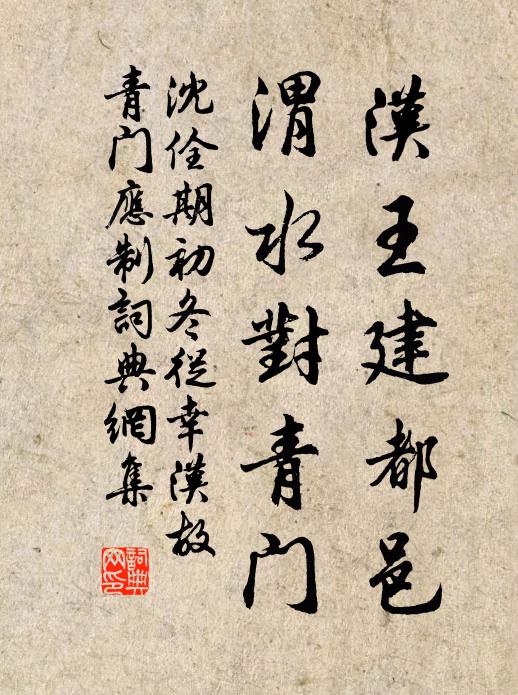 漢王建都邑
渭水對青門
沈佺期初冬從幸漢故
青门應制詞典網集
詞典网印